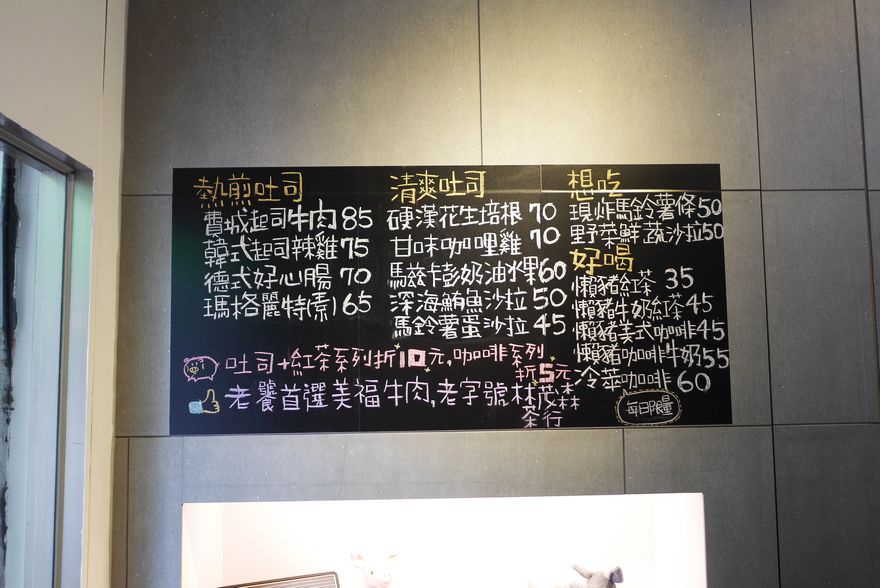 熱煎吐司
費城起司牛肉85
韓式起司辣雞75
德式好心腸 70
瑪格麗特(素)65
清爽吐司
硬漢花生培根 70
甘味咖哩雞 70
馬茲卡彭奶油水果60
深海鮪魚沙拉 50
馬鈴薯蛋沙拉 45
想吃
現炸馬鈴薯條50
野菜鮮蔬沙拉50
好喝
懶豬紅茶 35
懶豬牛奶紅茶45
懶豬美式咖啡45
懶豬咖啡牛奶55
冷萃咖啡 60
每日限量
吐司+紅茶系列折10元,咖啡系列
折5元
老饕首選美福牛肉,老字號林茂森
茶行